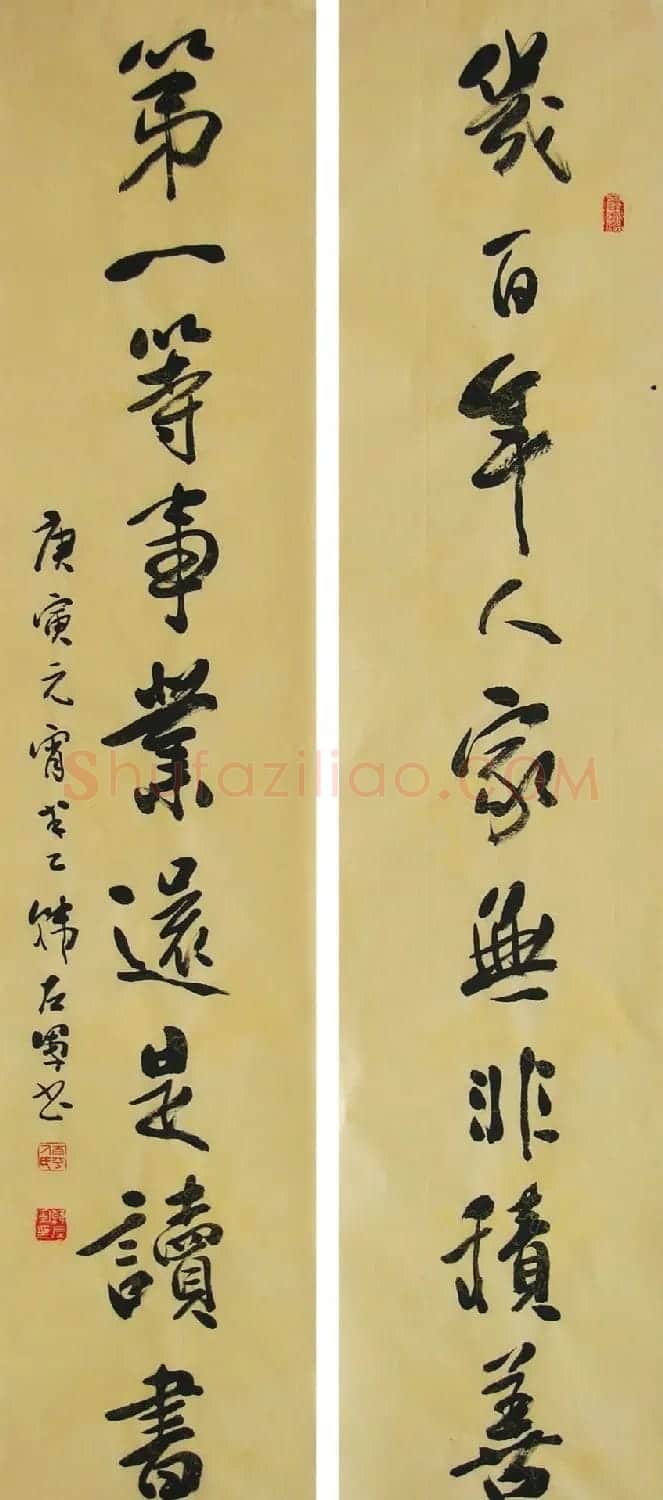 幾百年人家無非積善
第一等事業還是讀書
庚寅元宵
左軍书
Shufaziliao.COM